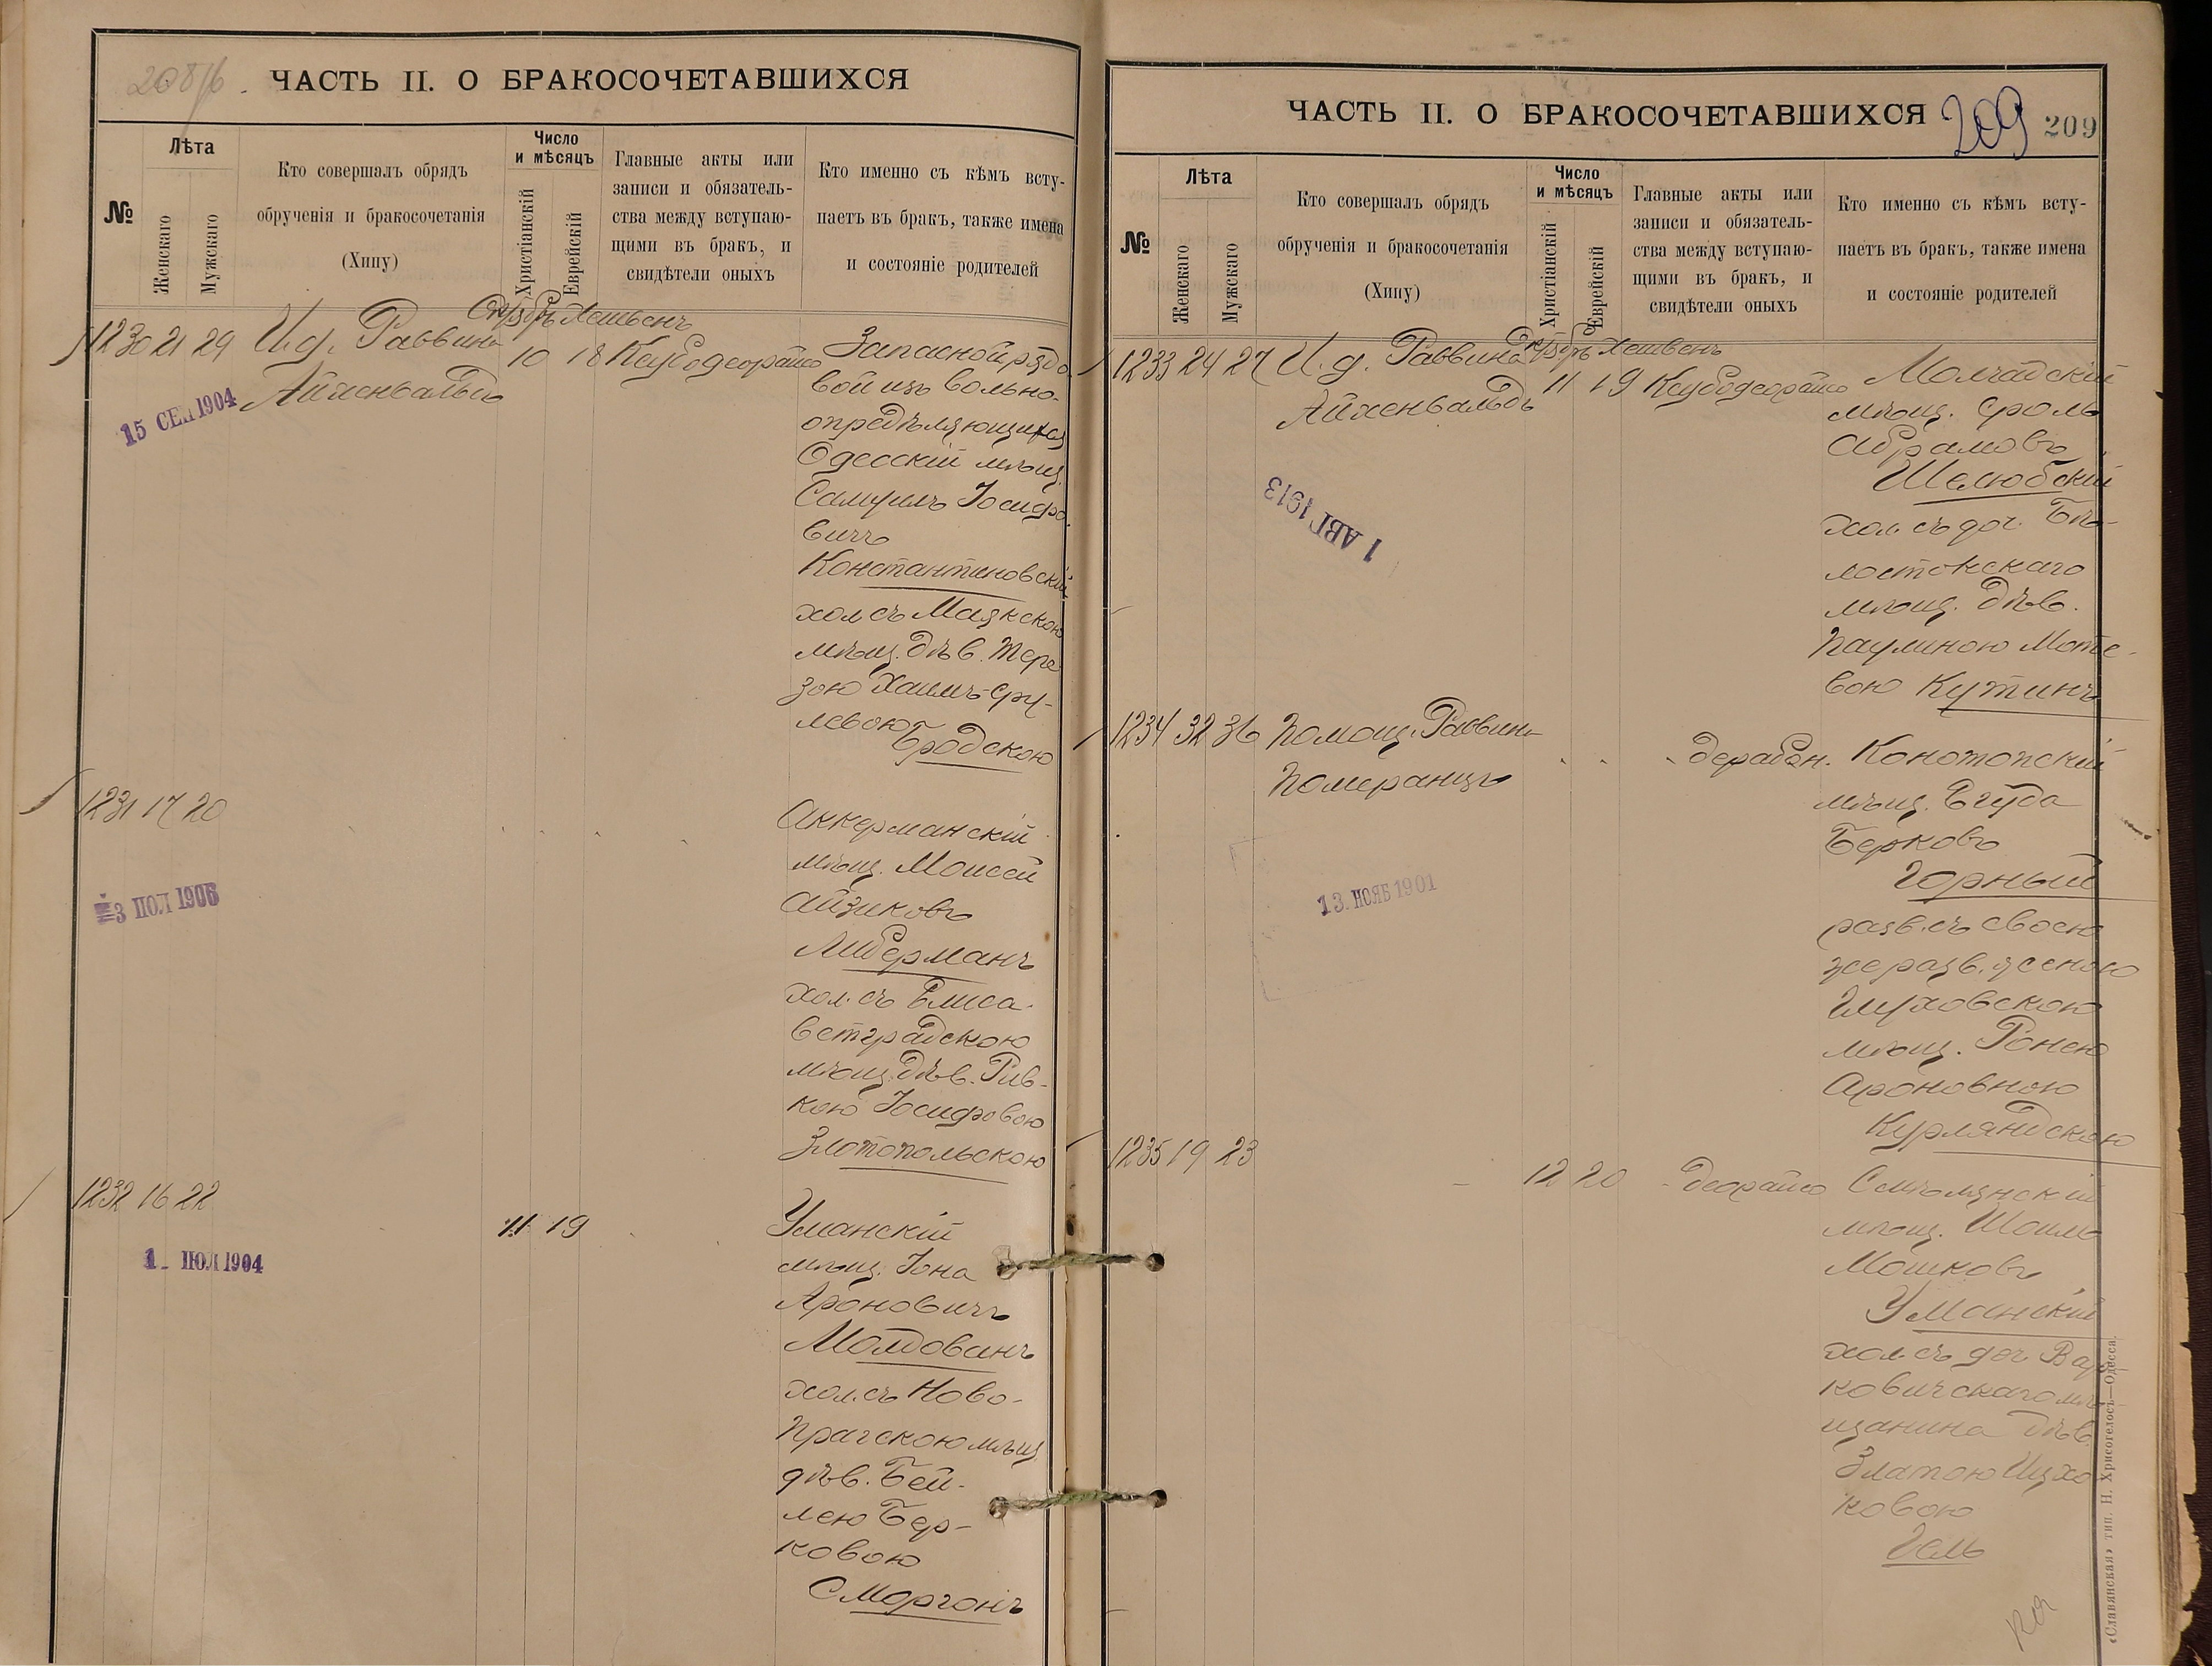 208/б.
ЧАСТЬ II. О БРАКОСОЧЕТАВШИХСЯ
№
Лѣта
Женскаго
Мужскаго
Кто совершалъ обрядъ
обрученія и бракосочетанія
(Хипу)
Число
и мѣсяцъ
Христіанскій
Еврейскій
Главные акты или
записи и обязатель-
ства между вступаю-
щими въ бракъ, и
свидѣтели оныхъ
Кто именно съ кѣмъ всту-
паетъ въ бракъ, также имена
и состояніе родителей
Октябрь Хешвенъ
1230 21 29 И.д. Раввина 10 18 Кеубодеорайсо Запасной рядо-
Айхенвальдъ вой изъ вольно-
15 СЕН 1904
опредѣляющихся
Одесскій мѣщ.
Самуилъ Іосифо-
вичъ
Константиновскій
хол. съ Маякскою
мѣщ. дѣв. Тере-
зою Хаимъ-Сру-
левою
Бродскою
1231 17 20
Аккерманскій
мѣщ. Моисей
3 ІЮЛ 1906
Айзиковъ
Либерманъ
хол. съ Елиса-
ветградскою
мѣщ. дѣв. Рив-
кою Іосифовою
Златопольскою
1232 16 22
11 19 Уманскій
1 ІЮЛ 1904
мѣщ. Іона
Ароновичъ
Молдованъ
хол. съ Ново-
Прагскою мѣщ.
дѣв. Бей-
лею Бер-
ковою
Сморгонъ
ЧАСТЬ II. О БРАКОСОЧЕТАВШИХСЯ
209
209
№
Лѣта
Женскаго
Мужскаго
Кто совершалъ обрядъ
обрученія и бракосочетанія
(Хипу)
Число
и мѣсяцъ
Христіанскій
Еврейскій
Главные акты или
записи и обязатель-
ства между вступаю-
щими въ бракъ, и
свидѣтели оныхъ
Кто именно съ кѣмъ всту-
паетъ въ бракъ, также имена
и состояніе родителей
Октябрь Хешвенъ
1233 24 27 И.д. Раввина 11 19 Кеубодеорайсо Молчадскій
Айхенвальдъ мѣщ. Сроль
Абрамовъ
Шелюбскій
1 АВГ 1913
хол. съ доч. Бѣ-
лостокскаго
мѣщ. дѣв.
Паулиною Моте-
вою Кутинъ
1234 32 36 Помощ. Раввина
Померанцъ
дерабан. Конотопскій
мѣщ. Егуда
Берковъ
Горный
13 НОЯБ 1901
разв. съ своею
же разв. женою
Глуховскою
мѣщ. Ронею
Ароновною
Курляндскою
1235 19 23
12 20 деорайсо Смѣлянскій
мѣщ. Шоилъ
Мошковъ
Уманскій
хол. съ доч. Вар-
ковичскаго мѣ-
щанина дѣв.
Златою Ицхо-
ковою
Гель
«Славянская» тип. Н. Хрисогелосъ—Одесса.